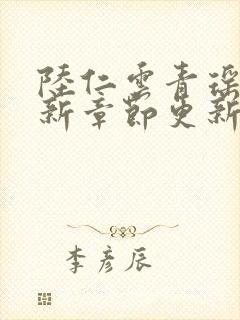 陸仁雲青瑤
新章節更新
李彥辰